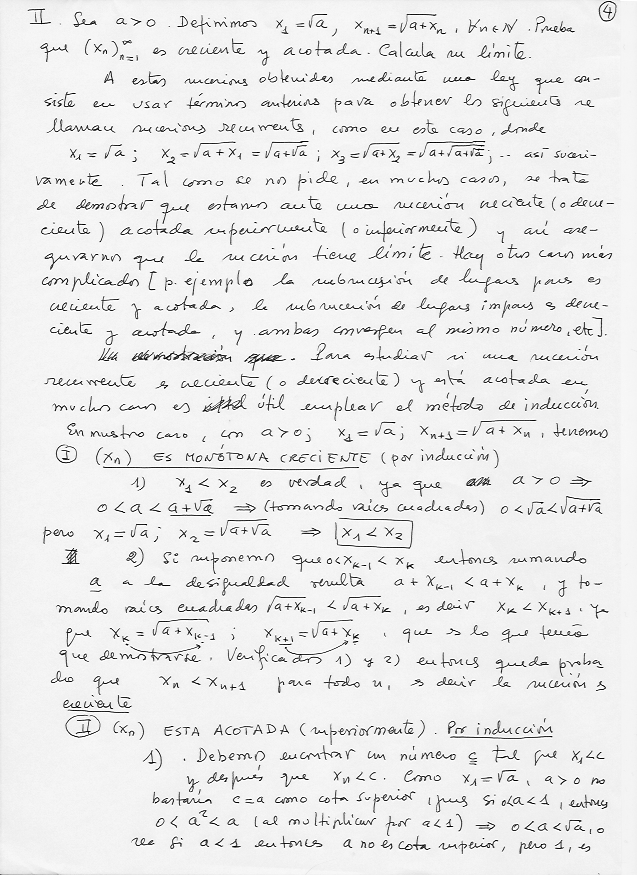 ④
II. Sea a>0. Definimos x₁=√a, xₙ₊₁=√(a+xₙ), ∀n∈ℕ. Prueba
que (xₙ)ₙ₌₁^∞ es creciente y acotada. Calcula su límite.
A estas sucesiones obtenidas mediante una ley que con-
siste en usar términos anteriores para obtener los siguientes se
llaman sucesiones recurrentes, como en este caso, donde
x₁=√a; x₂=√(a+x₁)=√(a+√a); x₃=√(a+x₂)=√(a+√(a+√a)); ... así sucesi-
vamente. Tal como se nos pide, en muchos casos, se trata
de demostrar que estamos ante una sucesión creciente (o decre-
ciente) acotada superiormente (o inferiormente) y así ase-
gurarnos que la sucesión tiene límite. Hay otros casos más
complicados [p. ejemplo la subsucesión de lugares pares es
creciente y acotada, la subsucesión de lugares impares es decre-
ciente y acotada, y ambas convergen al mismo número, etc].
Para estudiar si una sucesión
recurrente es creciente (o decreciente) y está acotada en
muchos casos es útil emplear el método de inducción
En nuestro caso, con a>0; x₁=√a; xₙ₊₁=√(a+xₙ), tenemos
Ⓘ (xₙ) ES MONÓTONA CRECIENTE (por inducción)
1) x₁<x₂ es verdad, ya que a>0 ⇒
0<a<a+√a ⇒ (tomando raíces cuadradas) 0<√a<√(a+√a)
pero x₁=√a; x₂=√(a+√a) ⇒ x₁<x₂
2) Si suponemos que 0<xₖ₋₁<xₖ entonces sumando
a a la desigualdad resulta a+xₖ₋₁<a+xₖ, y to-
mando raíces cuadradas √(a+xₖ₋₁)<√(a+xₖ), es decir xₖ<xₖ₊₁. ya
que xₖ=√(a+xₖ₋₁); xₖ₊₁=√(a+xₖ), que es lo que tenía
que demostrarse. Verificados 1) y 2) entonces queda proba
do que xₙ<xₙ₊₁ para todo n, es decir la sucesión es
creciente
Ⅱ (xₙ) ESTA ACOTADA (superiormente). Por inducción
1). Debemos encontrar un número c tal que x₁<c
y después que xₙ<c. Como x₁=√a, a>0 no
bastaría c=a como cota superior, pues si 0<a<1, entonces
0<a²<a (al multiplicar por a<1) ⇒ 0<a<√a, o
sea si a<1 entonces a no es cota superior, pero 1, es